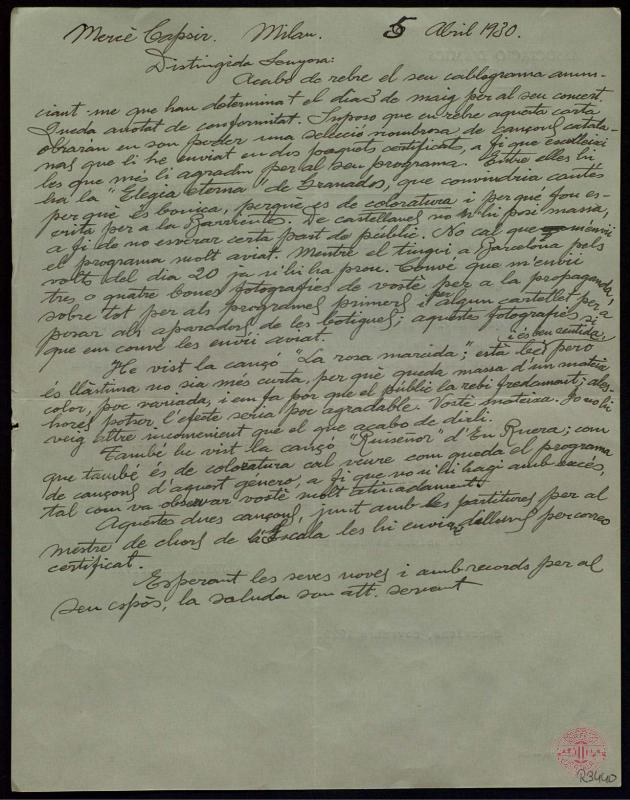 Mercè Capsir. Milan. 5 Abril 1930.
Distingida Senyora:
Acabo de rebre el seu cablograma anun-
ciant-me que han determinat el dia 3 de maig per al seu concert
Queda anotat de conformitat. Suposo que en rebre aquesta carta
obraràn en son poder una selecció nombrosa de cançons catala-
nas que li he enviat en dos paquets certificats, a fi que esculleixi
les que més li agradin per al seu programa. Entre elles hi
ha la "Elegia eterna" de Granados, que convindria cantés
perque és bonica, perquè és de coloratura i perqué fou es-
crita per a la Barrientos. De castellanes no n'hi posi massa,
a fi de no esverar certa part de públic. No cal que m'enviï
el programa molt aviat. Mentre el tingui a Barcelona pels
volts del dia 20 ja n'hi ha prou. Convé que m'enviï
tres o quatre bones fotografies de vosté per a la propaganda,
sobre tot per als programes primers i per algun cartellet per a
posar als aparadors de les botigues; aquestes fotografies si
que em convé les enviï aviat.
i és ben sentida,
He vist la cançó "La rosa marcida"; està bé; però
és llàstima no sia més curta, per què queda massa d'un mateix
color, poc variada, i em fa por que el públic la rebi fredament; ales-
hores potser l'efecte seria poc agradable. Vosté mateixa. Jo no hi
veig altre inconvenient que el que acabo de dirli.
També he vist la cançó "Ruiseñor" d'En Rivera; com
que també és de coloratura cal veure com queda el programa
de cançons d'aquest genero, a fi que no n'hi hagi amb excés,
tal com va observar vosté molt atinadament
Aquestes dues cançons, junt amb les partitures per al
mestre de chors de la Escala les hi enviaré dilluns per correo
certificat.
Esperant les seves noves i amb records per al
seu espòs, la saluda son att. servent
R3440